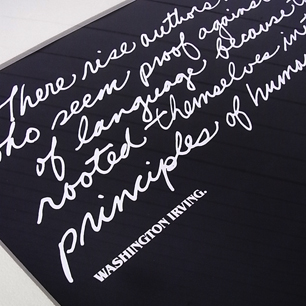 There rise authors
who seem proof agains
of language because
rooted themselves in
principles of huma
WASHINGTON IRVING.